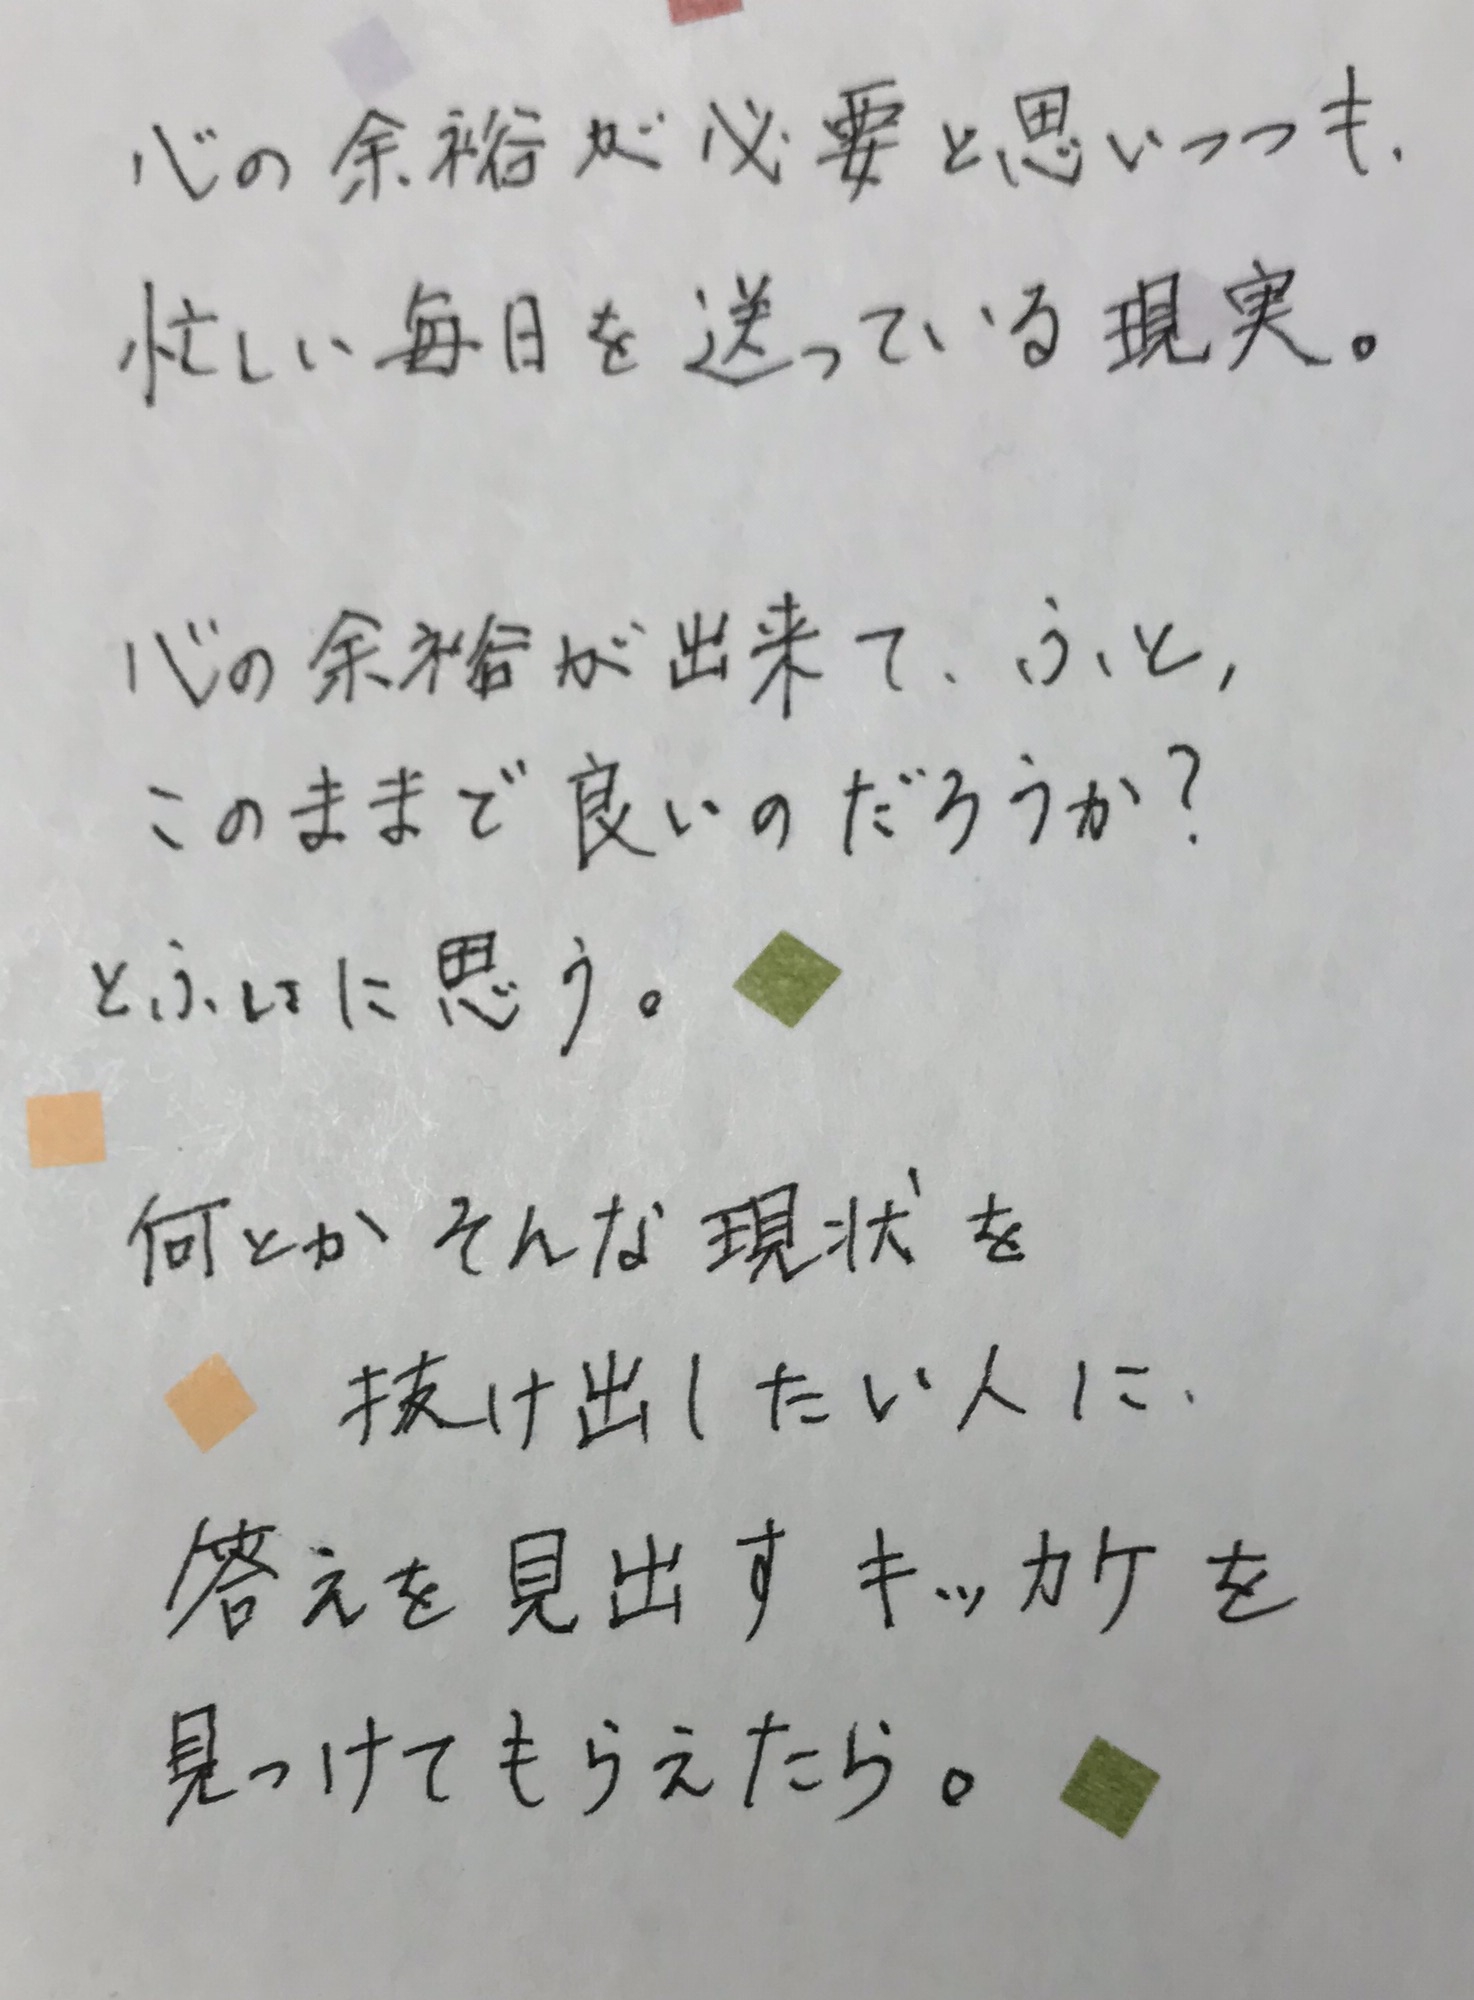 心の余裕が必要と思いつつも、
忙しい毎日を送っている現実。
心の余裕が出来て、ふと、
このままで良いのだろうか?
とふいに思う。
何とかそんな現状を
抜け出したい人に、
答えを見出すキッカケを
見つけてもらえたら。